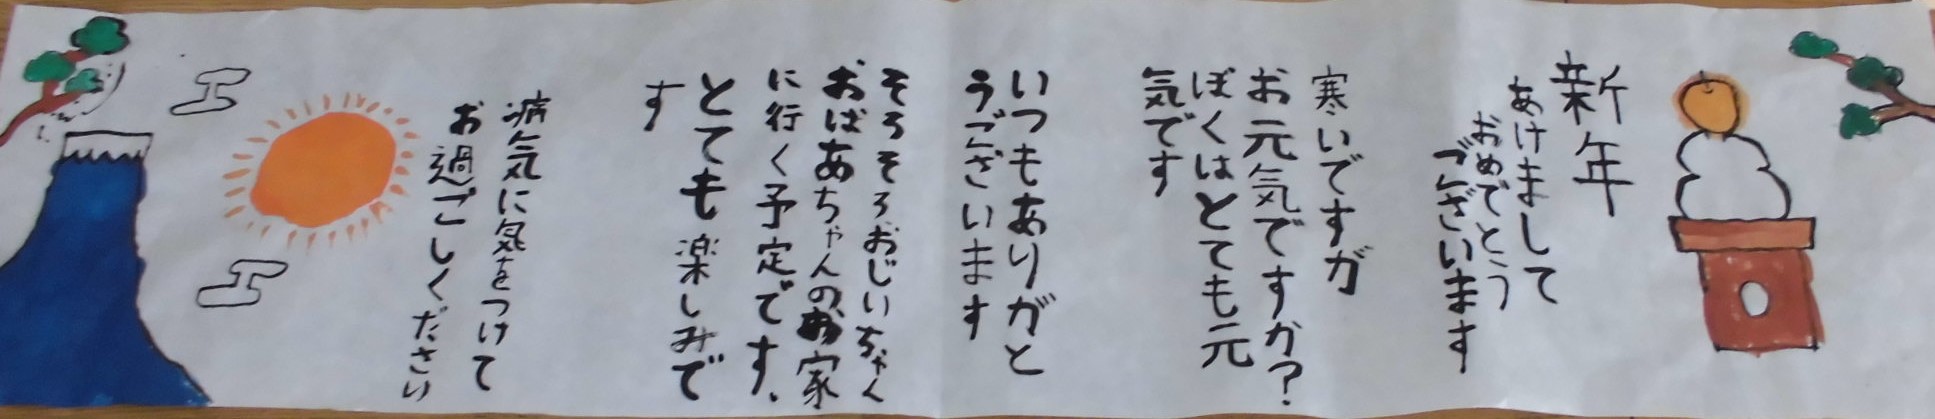 新年
あけまして
おめでとう
ございます
寒いですが
お元気ですか?
ぼくはとても元
気です
いつもありがと
うございます
そろそろおじいちゃん
おばあちゃんのお家
に行く予定です、
とても楽しみで
す
病気に気をつけて
お過ごしく
ださい